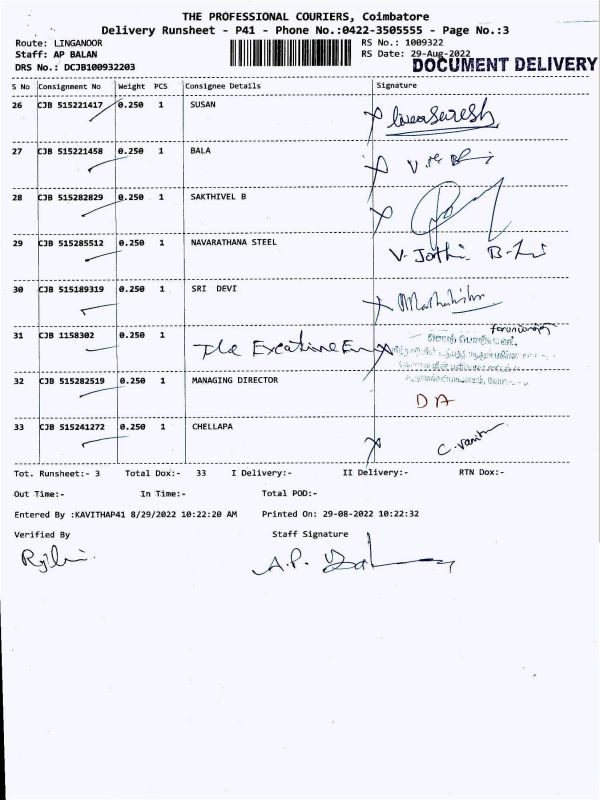 THE PROFESSIONAL COURIERS, Coimbatore
Delivery Runsheet - P41 - Phone No.:0422-3505555 - Page No.:3
Route: LINGANOOR RS No.: 1009322
Staff: AP BALAN RS Date: 29-Aug-2022
DRS No.: DCJB100932203 DOCUMENT DELIVERY
S No Consignment No Weight PCS Consignee Details Signature
26 CJB 515221417 0.250 1 SUSAN
27 CJB 515221458 0.250 1 BALA
28 CJB 515282829 0.250 1 SAKTHIVEL B
29 CJB 515285512 0.250 1 NAVARATHANA STEEL V. Jothi
30 CJB 515189319 0.250 1 SRI DEVI
31 CJB 1158302 0.250 1 The
32 CJB 515282519 0.250 1 MANAGING DIRECTOR DA
33 CJB 515241272 0.250 1 CHELLAPA
Tot. Runsheet:- 3 Total Dox:- 33 I Delivery:- II Delivery:- RTN Dox:-
Out Time:- In Time:- Total POD:-
Entered By :KAVITHAP41 8/29/2022 10:22:20 AM Printed On: 29-08-2022 10:22:32
Verified By Staff Signature
A.P.